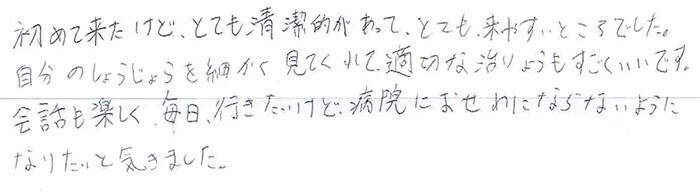 初めて来たけど、とても清潔的があって、とても、来やすいところでした。
自分のしょうじょうを細かく見てくれて、適切な治りょうもすごくいいです。
会話も楽しく、毎日、行きたいけど、病院におせわにならないように
なりたいと気きました。